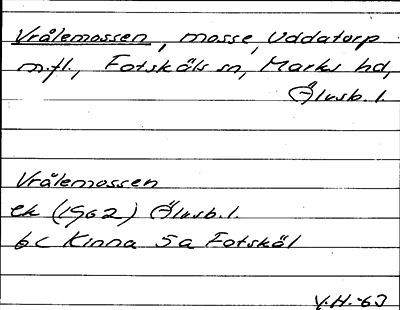 Vrålemossen, mosse, Uddatorp
m.fl., Fotskäls sn, Marks hd,
Älvsb. l.
Vrålemossen
ek (1962) Älvsb. l.
6c Kinna 5a Fotskäl
V.H.-63